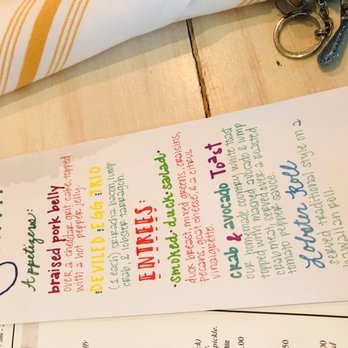 Appetizers:
braised pork belly
over a cheddar grit cake topped
with a hot pepper jelly.
DEVILED EGG TRIO
(1 each) sriracha bacon, lump
crab, & lobster tarragon.
ENTREES
·smoked duck salad·
duck breast, mixed greens, craisins,
pecans, goat cheese, & a citrus
vinaigrette.
crab & avocado Toast
our in house country white toast
topped with mashed avocado & lump
crab meat, served over a roasted
tomato pepper sauce
Lobster Roll
served traditional style on a
hawaiian roll.
pickle.